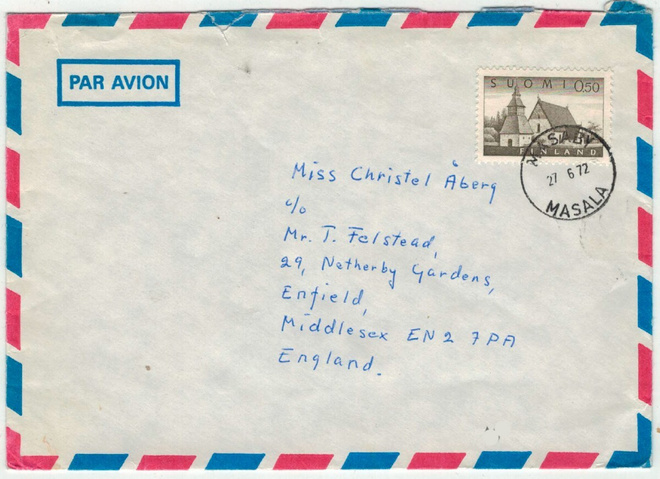 PAR AVION
SUOMI 0,50
FINLAND
MASABY
27 6 72
MASALA
Miss Christel Åberg
c/o
Mr. T. Felstead,
29, Netherby Gardens,
Enfield,
Middlesex EN2 7PA
England.